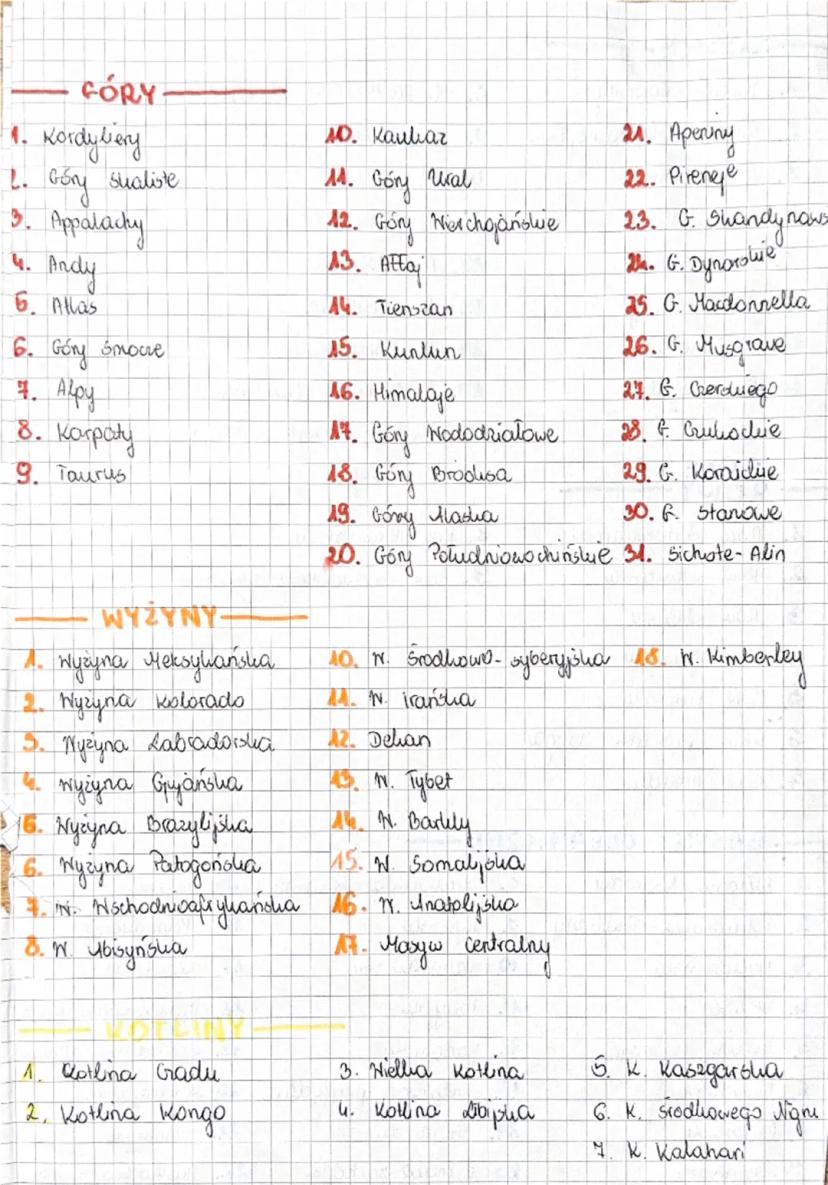 GÓRY
1. Kordyliery
2. Góry Skaliste
3. Appalachy
4. Andy
5. Atlas
6. Góry Smocze
7. Alpy
8. Karpaty
9. Taurus
10. Kaukaz
11. Góry Ural
12. Góry Wierchojańskie
13. Ałtaj
14. Tienszan
15. Kunlun
16. Himalaje
17. Góry Wododziałowe
18. Góry Brooksa
19. Góry Alaska
20. Góry Południowochińskie
21. Apeniny
22. Pireneje
23. G. Skandynaws
24. G. Dynarskie
25. G. Macdonnella
26. G. Musgrave
27. G. Czerskiego
28. G. Czukockie
29. G. Koraickie
30. G. Stanowe
31. Sichote-Alin
WYŻYNY
1. Wyżyna Meksykańska
2. Wyżyna Kolorado
3. Wyżyna Labradorska
4. Wyżyna Gujańska
5. Wyżyna Brazylijska
6. Wyżyna Patagońska
7. W. Wschodnioafrykańska
8. W. Abisyńska
10. W. Środkowo-syberyjska
11. W. irańska
12. Dekan
13. W. Tybet
14. W. Barkly
15. W. Somalijska
16. W. Anatolijska
17. Masyw Centralny
18. W. Kimberley
KOTLINY
1. Kotlina Czadu
2. Kotlina Kongo
3. Wielka Kotlina
4. Kotlina Libijska
5. K. Kaszgarska
6. K. Środkowego Nigru
7. K. Kalahari